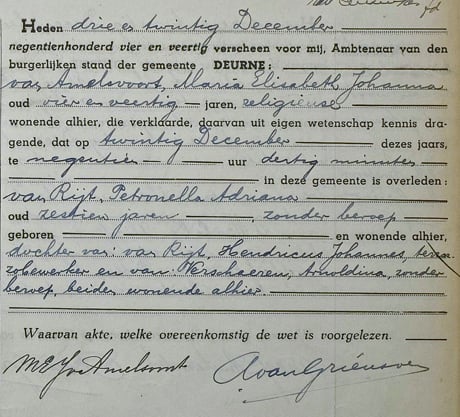 Heden drie en twintig December
negentienhonderd vier en veertig verscheen voor mij, Ambtenaar van den
burgerlijken stand der gemeente DEURNE:
van Amelsvoort, Maria Elisabeth Johanna
oud vier en veertig jaren, religieuse
wonende alhier, die verklaarde, daarvan uit eigen wetenschap kennis dra-
gende, dat op twintig December dezes jaars,
te negentien uur dertig minuten
in deze gemeente is overleden:
van Rijt, Petronella Adriana
oud zestien jaren, zonder beroep
geboren en wonende alhier,
dochter van: van Rijt, Hendricus Johannes,
en van Verschaeren, Arnoldina, zonder
beroep, beiden wonende alhier.
Waarvan akte, welke overeenkomstig de wet is voorgelezen.
MEJv Amelsvoort